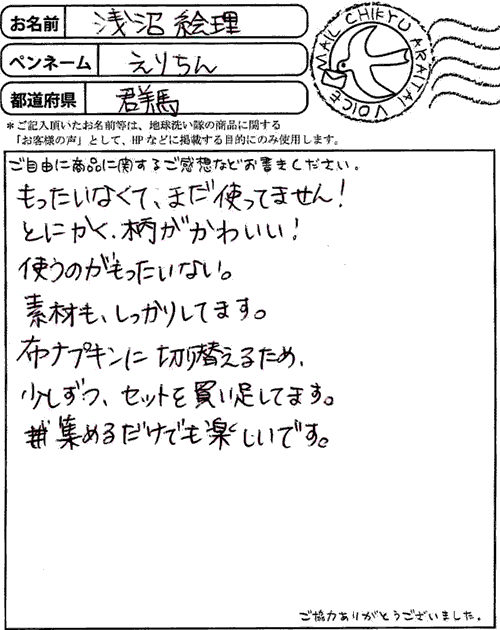 お名前 浅沼 絵理
ペンネーム えりちん
都道府県 群馬
MAIL CHIKYU ARAITAI VOICE
＊ご記入頂いたお名前等は、地球洗い隊の商品に関する
「お客様の声」として、HPなどに掲載する目的にのみ使用します。
ご自由に商品に関するご感想などお書きください。
もったいなくて、まだ使ってません!
とにかく、柄がかわいい!
使うのがもったいない。
素材も、しっかりしてます。
布ナプキンに切り替えるため、
少しずつ、セットを買い足してます。
集めるだけでも楽しいです。
ご協力ありがとうございました。